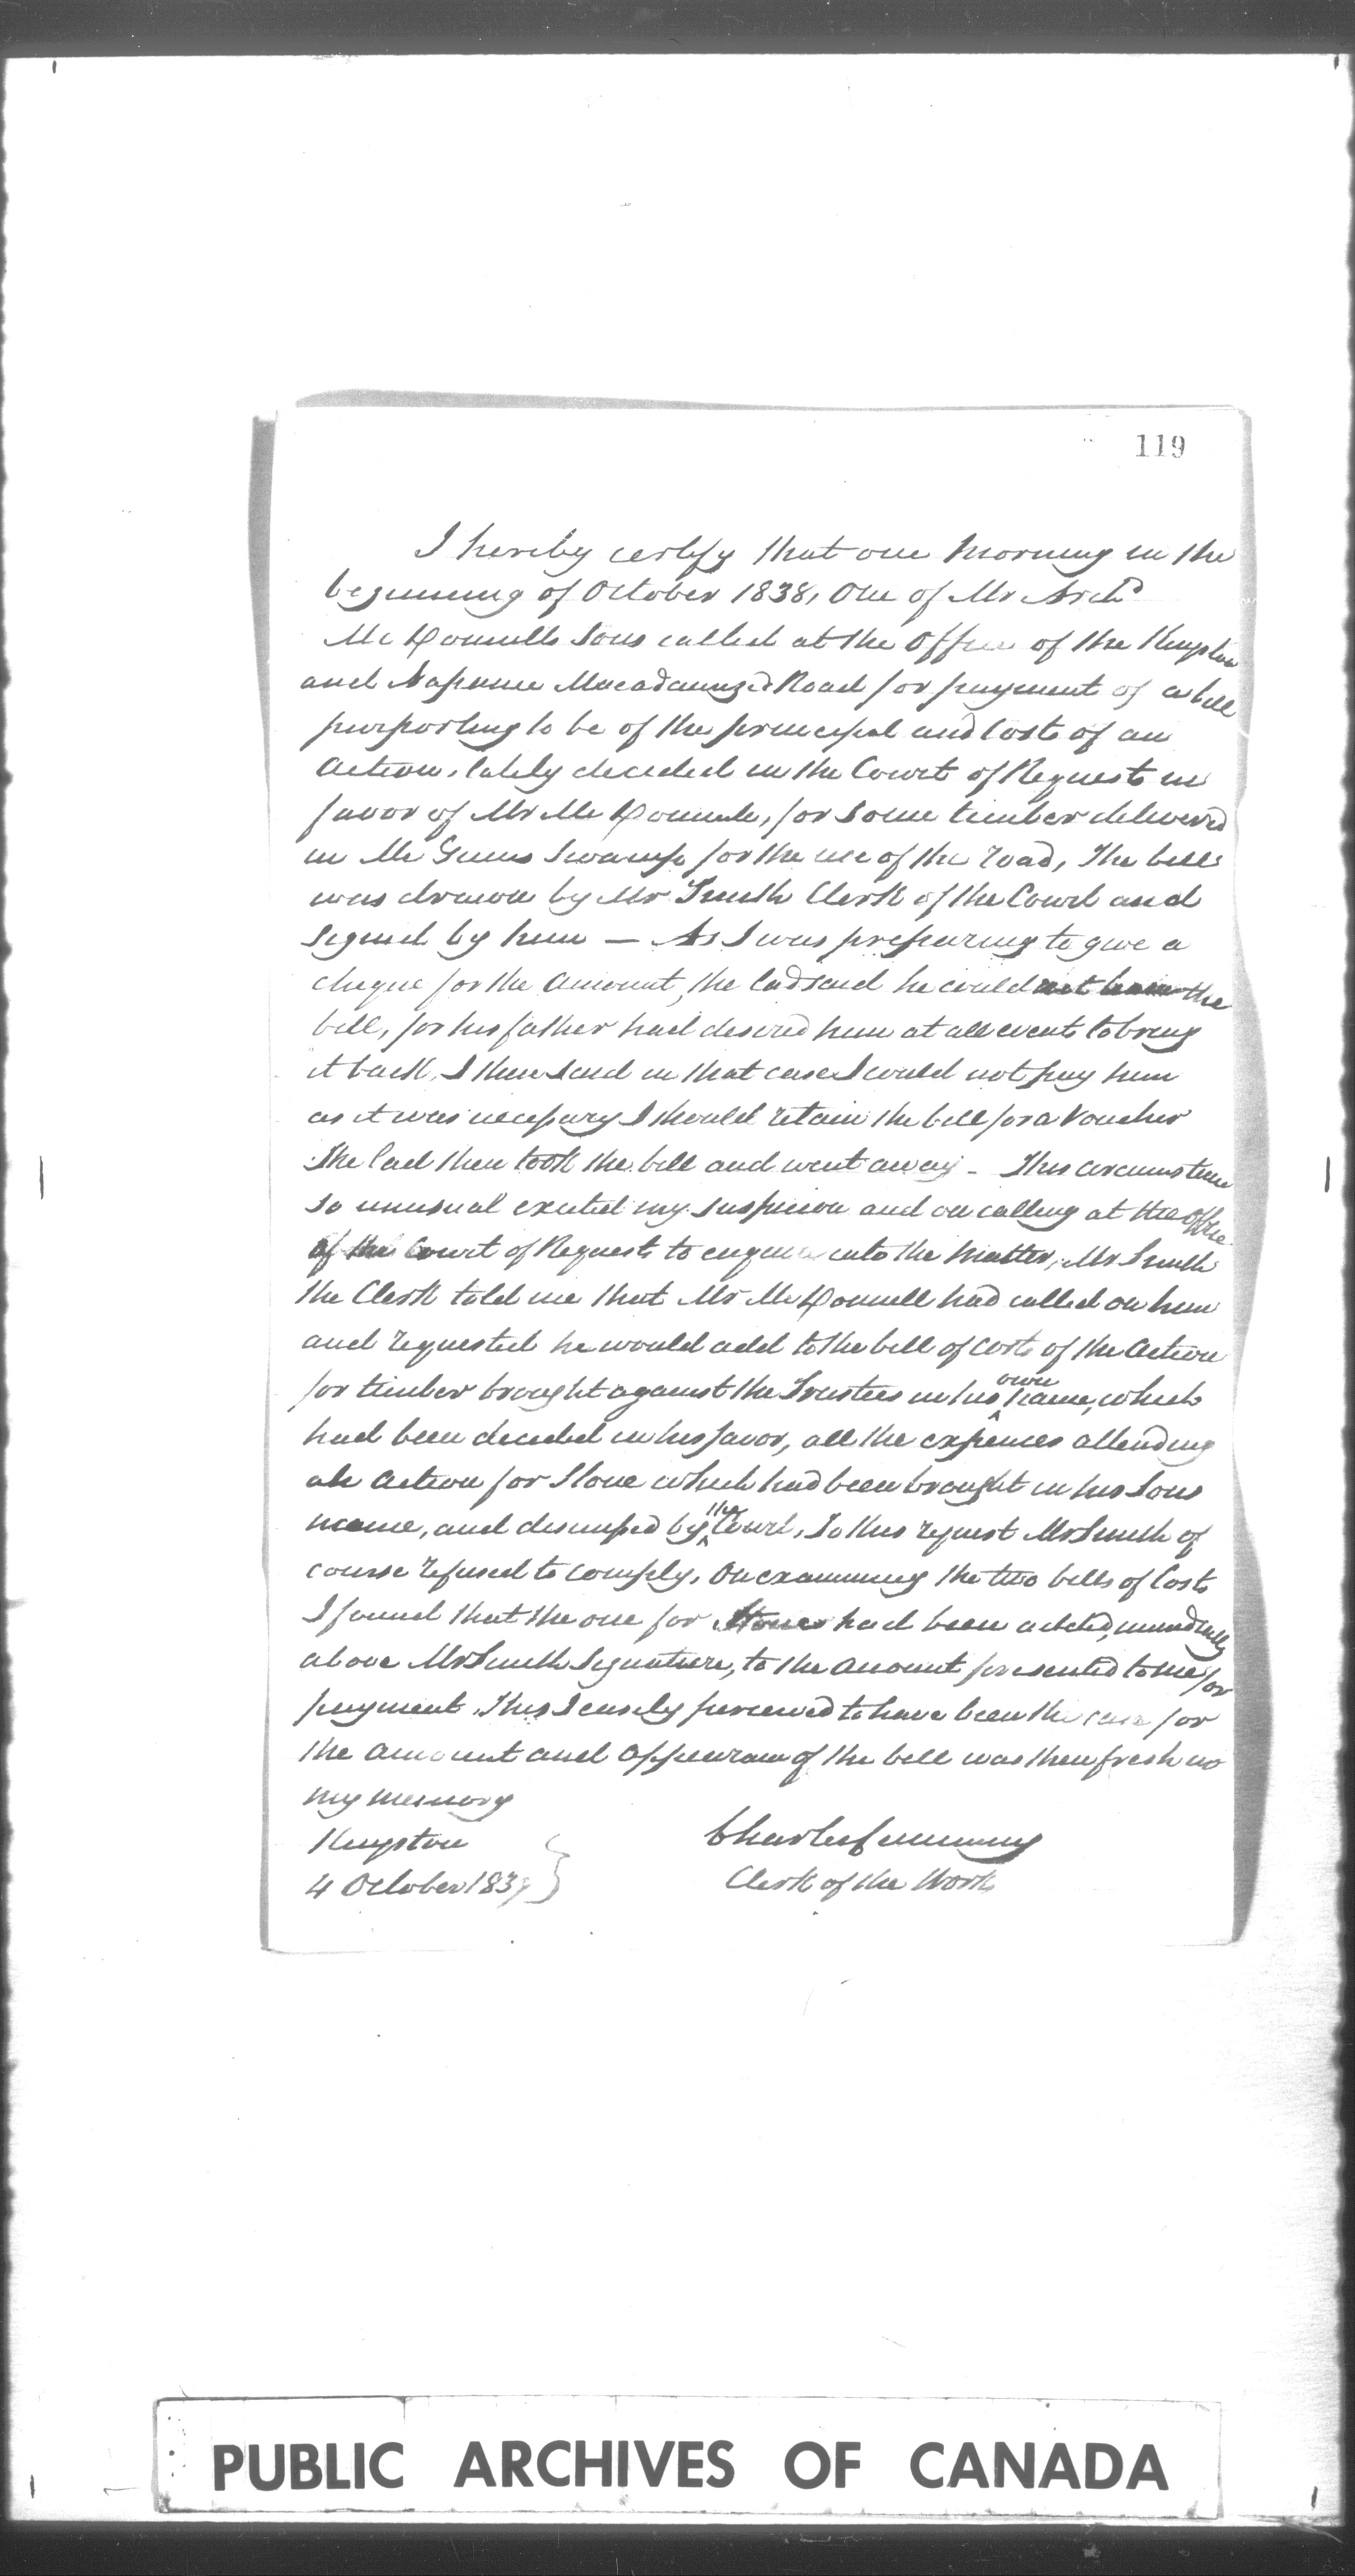 119
I hereby certify that one morning in the
beginning of October 1838, One of Mr Archd
McDonnells Sons called at the Office of the Kingston
and Napanee Macadamized Road for payment of a bill
purporting to be of the principal and Costs of an
Action, lately decided in the Court of Requests in
favor of Mr McDonnell, for some timber delivered
in Mc Guins Swamp for the use of the road, The bill
was drawn by Mr Smith Clerk of the Court and
signed by him — As I was preparing to give a
cheque for the Amount, the lad said he could not leave the
bill, for his father had desired him at all events to bring
it back, I then said in that case I could not pay him
as it was necessary I should retain the bill for a Voucher
The lad then took the bill and went away - This circumstance
so unusual excited my suspicion and on calling at the Office
of the Court of Requests to enquire into the matter, Mr Smith
the Clerk told me that Mr McDonnell had called on him
and requested he would add to the bill of costs of the Action
for timber brought against the Trustees in his own name, which
had been decided in his favor, all the expences attending
an Action for Stone which had been brought in his Sons
name, and dismissed by the Court, To this request Mr Smith of
course refused to comply, On examining the two bills of Costs
I found that the one for Stone had been added, immediately
above Mr Smiths Signature, to the Amount presented to me for
payment. This I easily perceived to have been the case for
the amount and appearance of the bill was then fresh in
my memory
Kingston
4 October 1839
Charles Cumming
Clerk of the Works
PUBLIC ARCHIVES OF CANADA